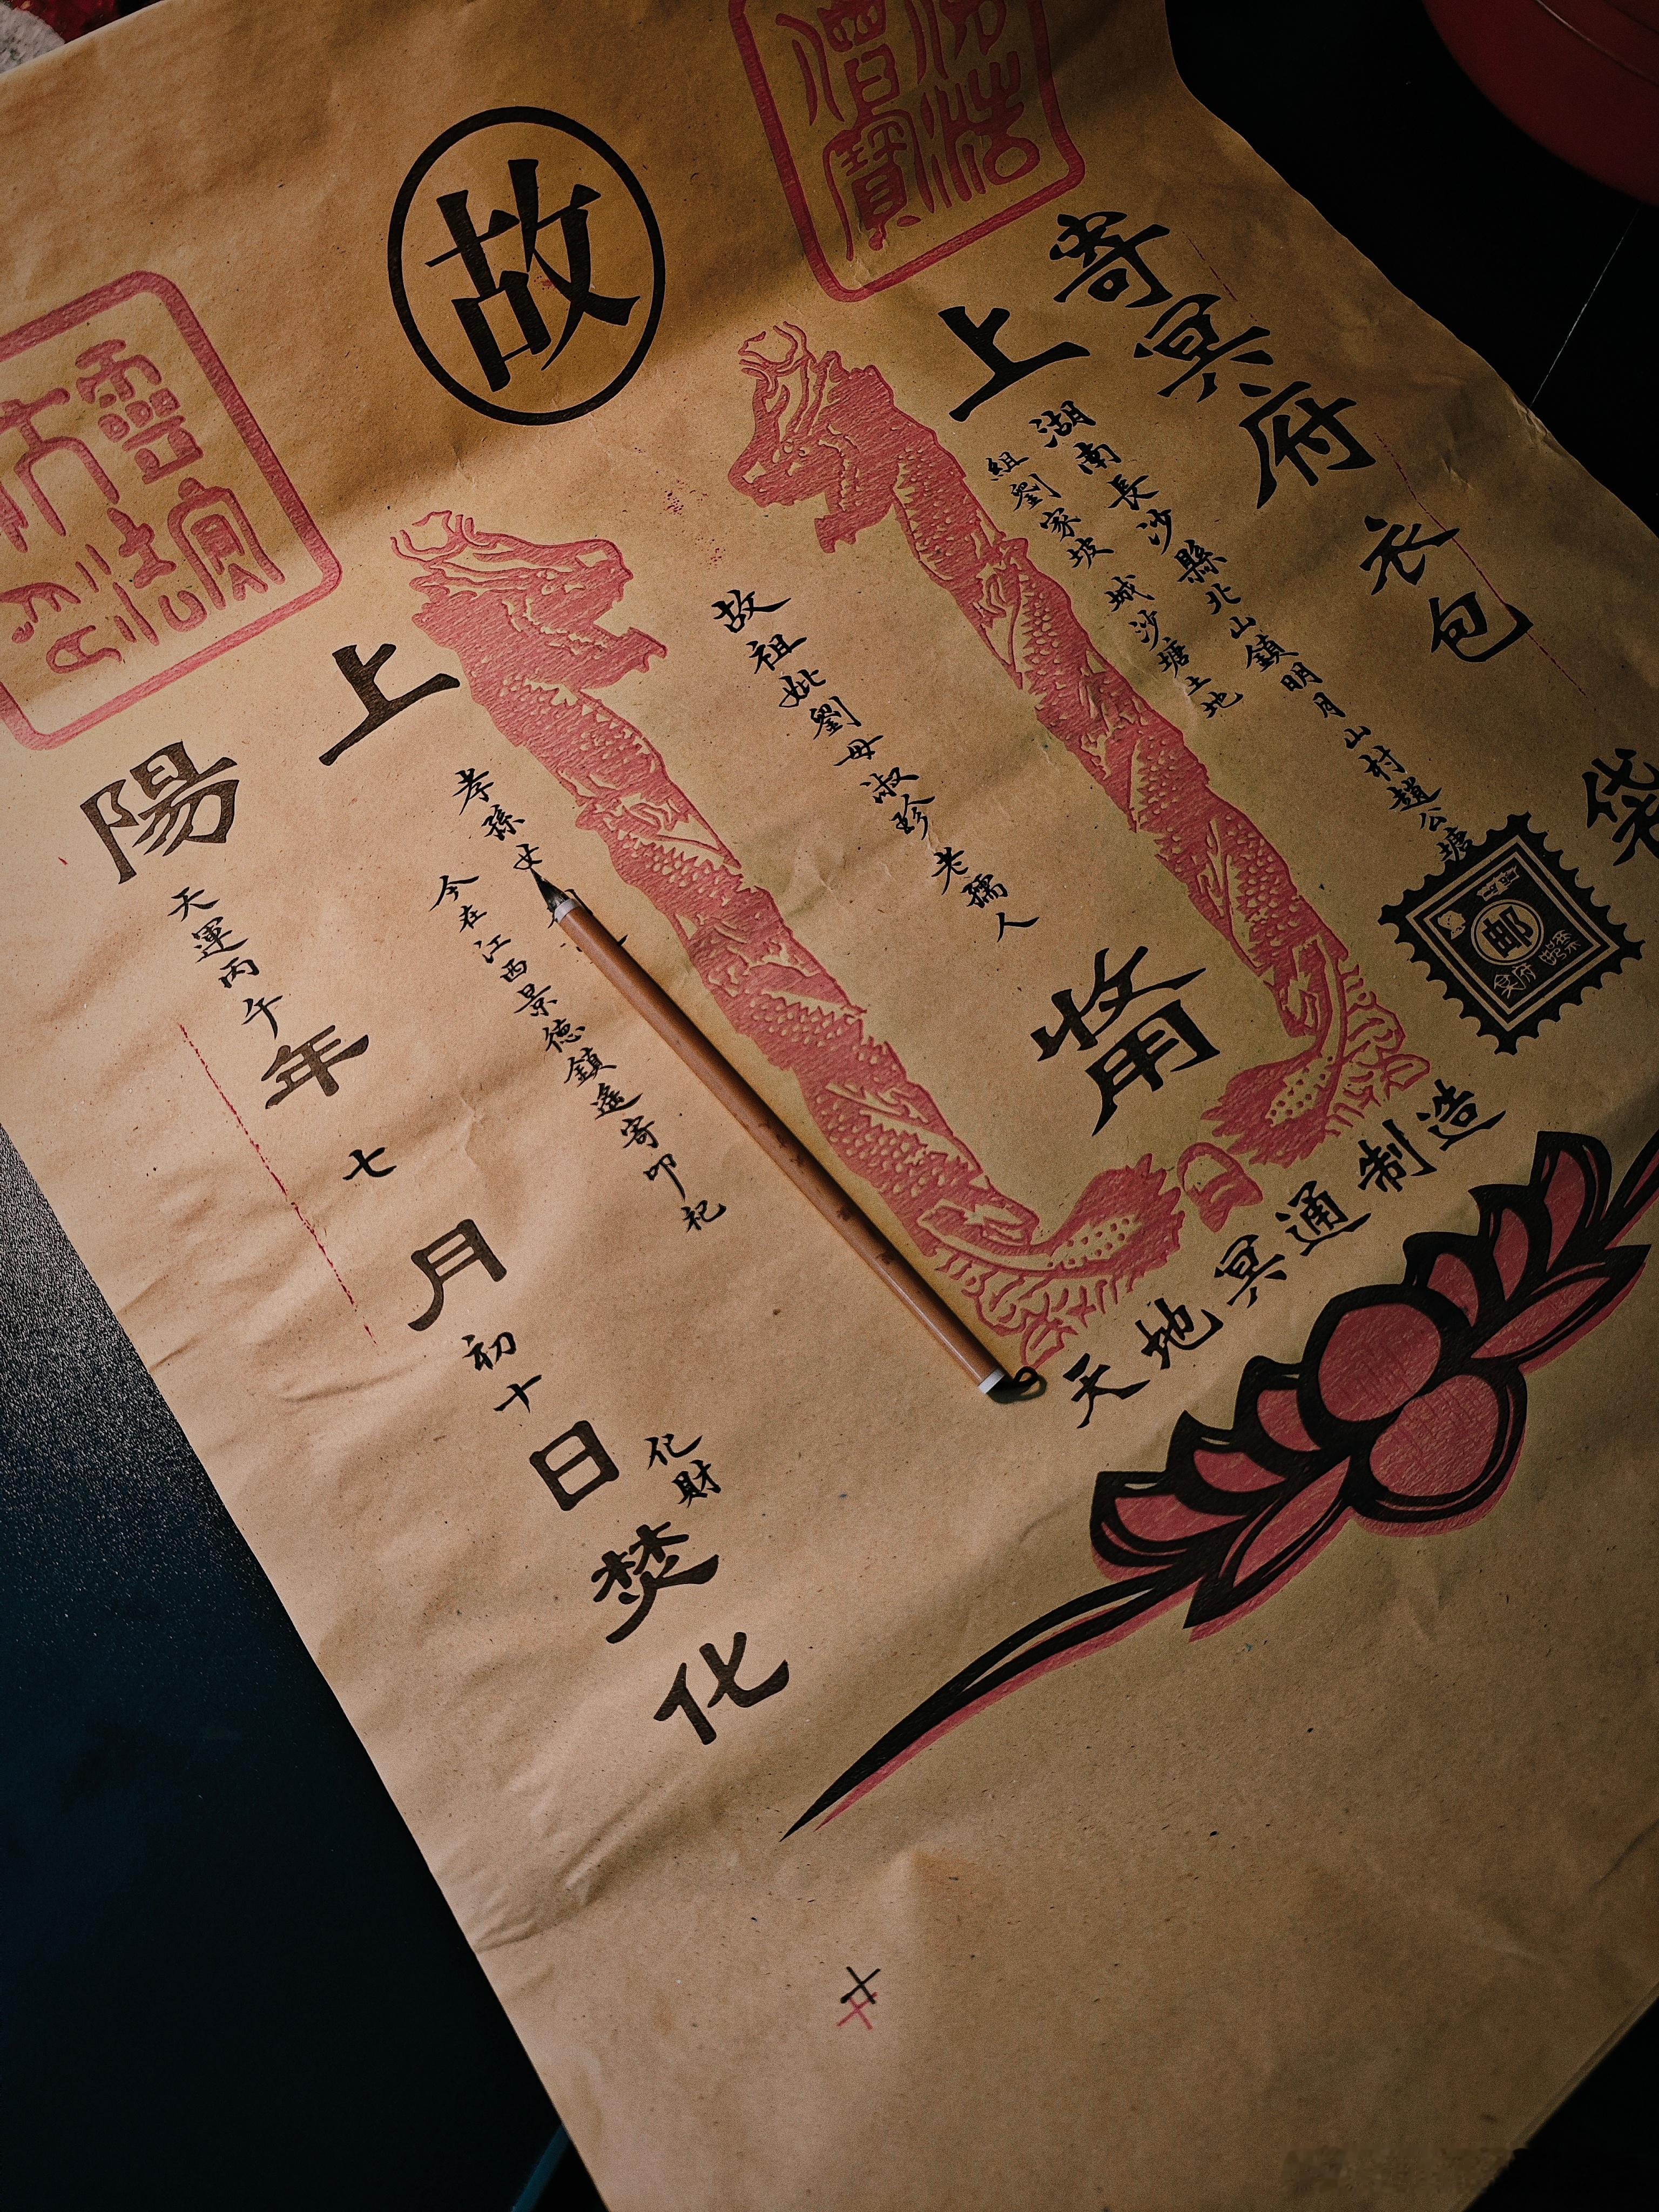 寄冥府衣包袋
上
湖南長沙縣北山鎮明月山村趙公塘
組劉家坡 城沙塘土地
故
故祖妣劉母淑珍老孺人
上
孝孫女
今在江西景德鎮遙寄叩祀
陽
天運丙午年七月初十日焚化
化財
天地冥通制造
邮
冥府
佛法僧寶